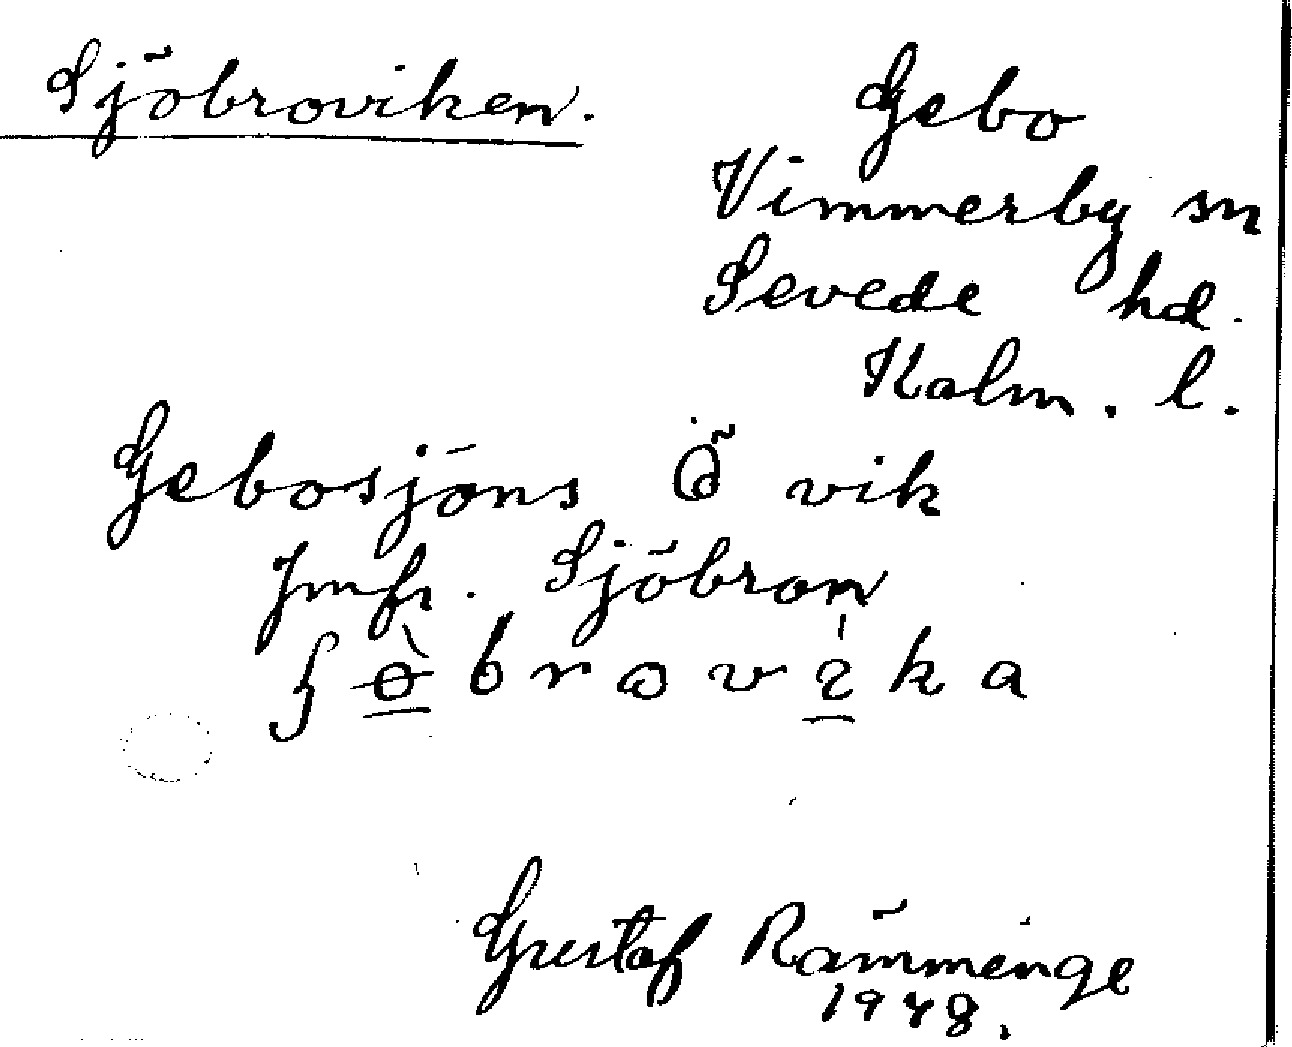 Sjöbroviken.
Gebo
Vimmerby sn
Sevede hd.
Kalm. l.
Gebosjöns Ö vik
Jmfr. Sjöbron
Gustaf Rämmenge
1948.